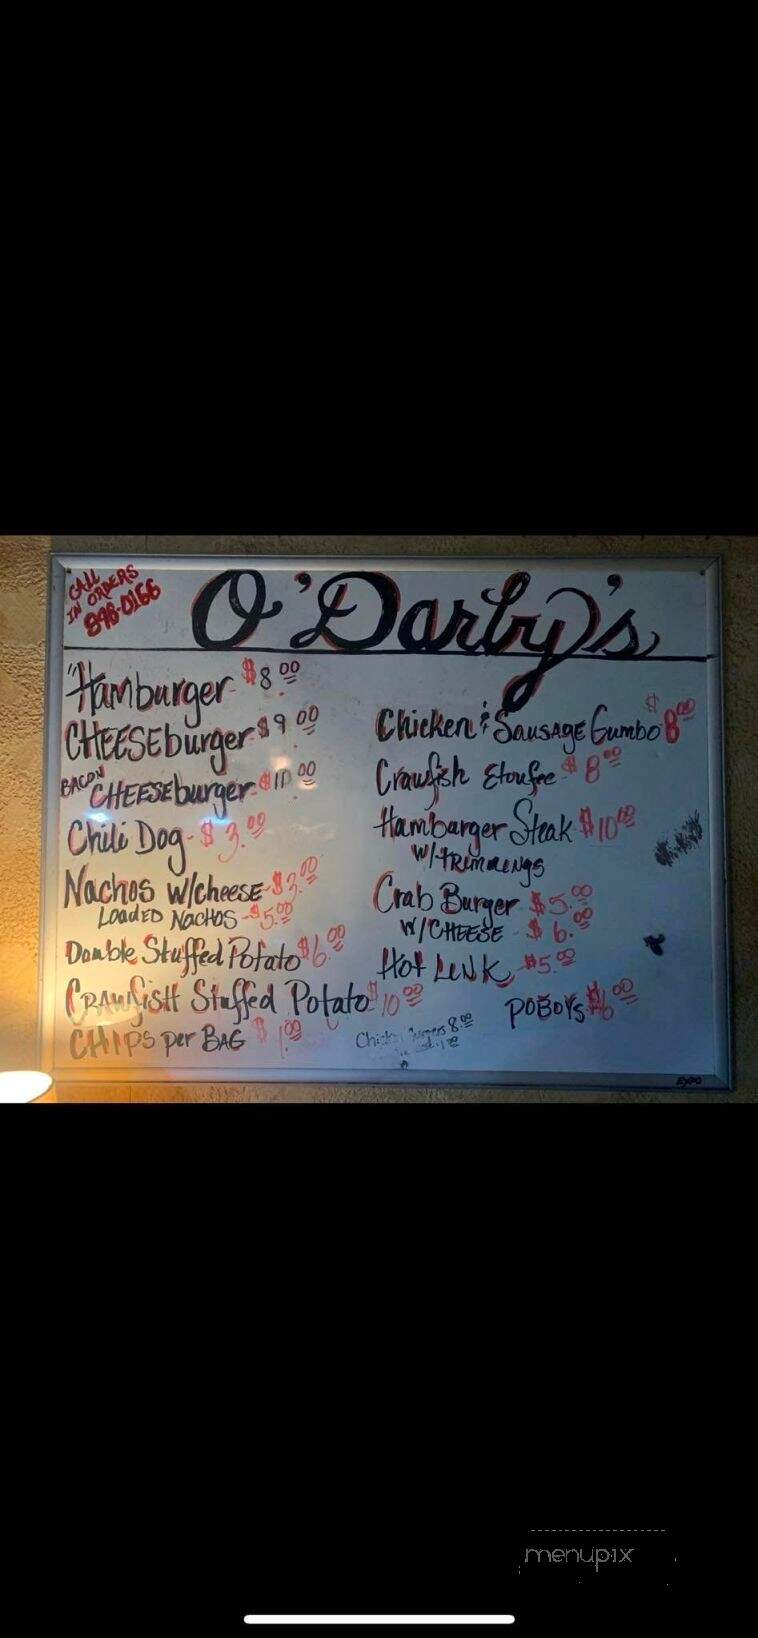 CALL
IN ORDERS
896-0166
O'Darby's
"Hamburger $8.00
CHEESEburger $9.00
BACON
CHEESEburger $10.00
Chili Dog - $3.00
Nachos w/cheese - $3.00
LOADED NACHOS - $5.00
Double Stuffed Potato $6.00
CRAWfisH Stuffed Potato $10.00
CHIPS per BAG $1.00
Chicken & SAUSAGE Gumbo $8.00
Crawfish Etoufee $8.00
Hamburger Steak $10.00
W/TRIMMINGS
Crab Burger $5.00
W/CHEESE $6.00
Hot LINK $5.00
POBOYS $6.00
8.00
EXPO
menupix